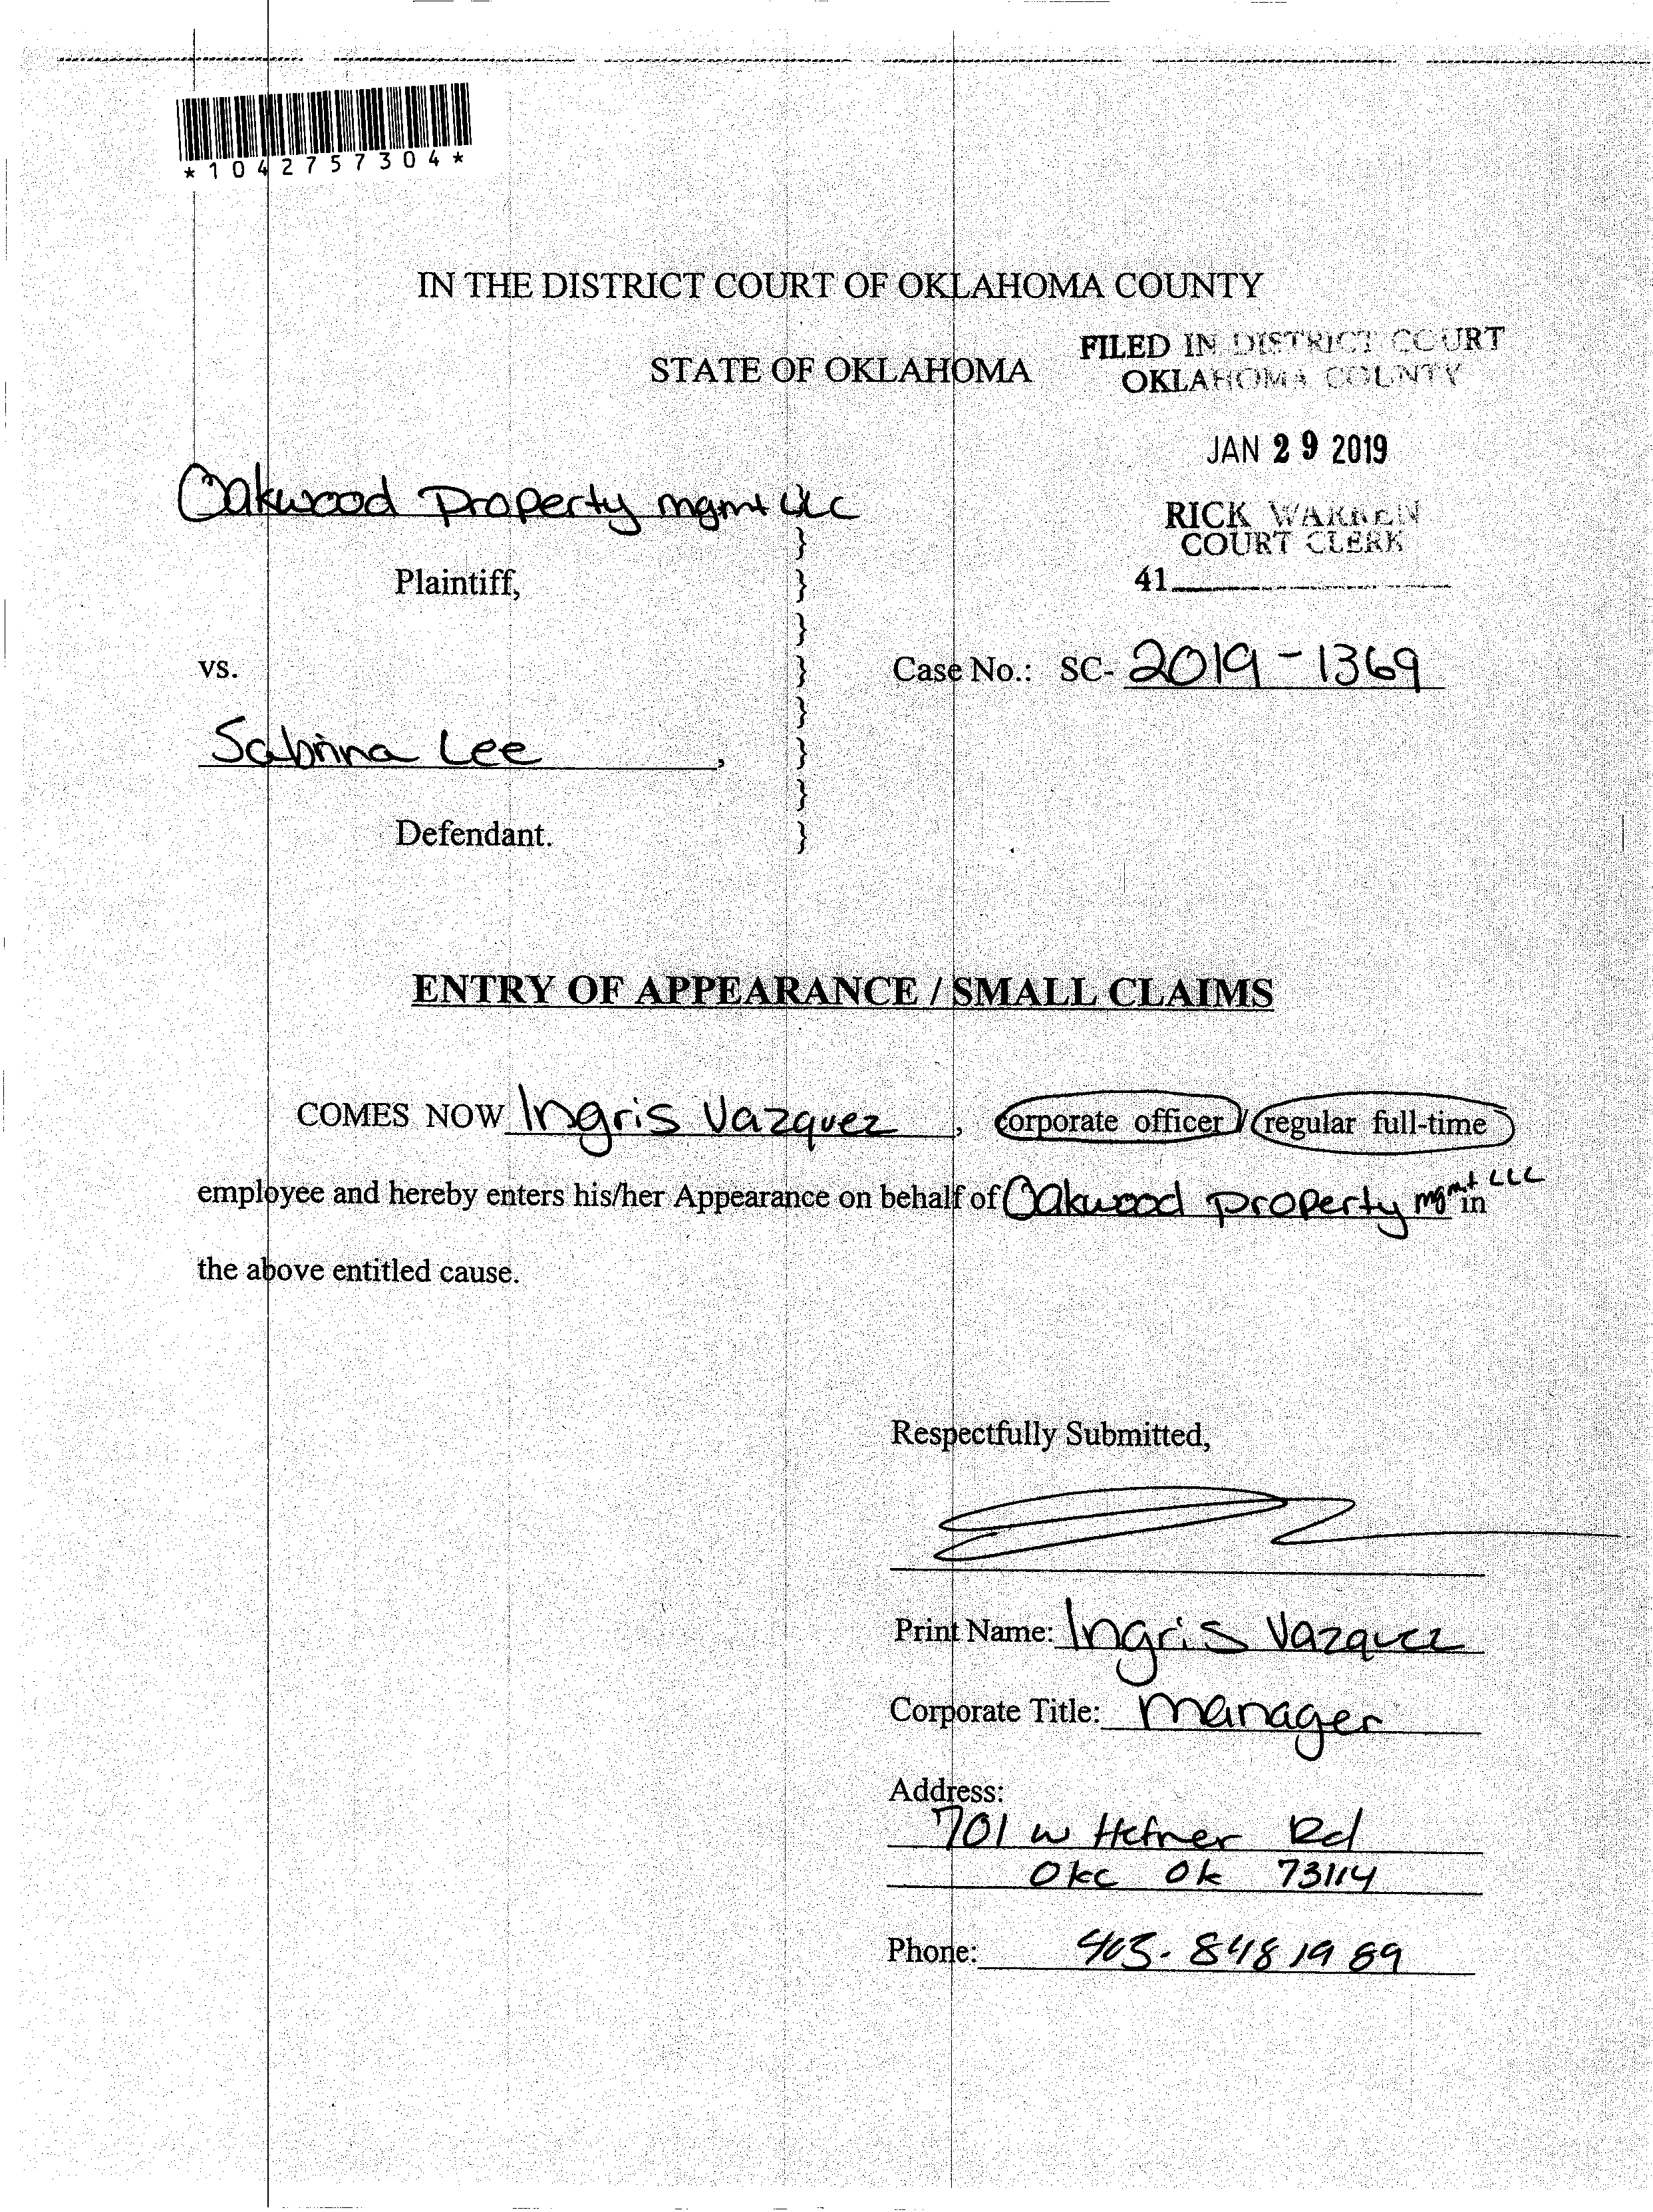 *1042757304*
IN THE DISTRICT COURT OF OKLAHOMA COUNTY
STATE OF OKLAHOMA
FILED IN DISTRICT COURT
OKLAHOMA COUNTY
JAN 29 2019
RICK WARREN
COURT CLERK
41
Oakwood Property mgmt LLC
}
Plaintiff, }
}
vs. }
Case No.: SC- 2019-1369
}
Sabrina Lee, }
}
Defendant. }
ENTRY OF APPEARANCE / SMALL CLAIMS
COMES NOW Ingris Vazquez, corporate officer / regular full-time
employee and hereby enters his/her Appearance on behalf of Oakwood property mgmt LLC in
the above entitled cause.
Respectfully Submitted,
Print Name: Ingris Vazquez
Corporate Title: manager
Address:
701 W Hefner Rd
OKC OK 73114
Phone: 405-848 1989